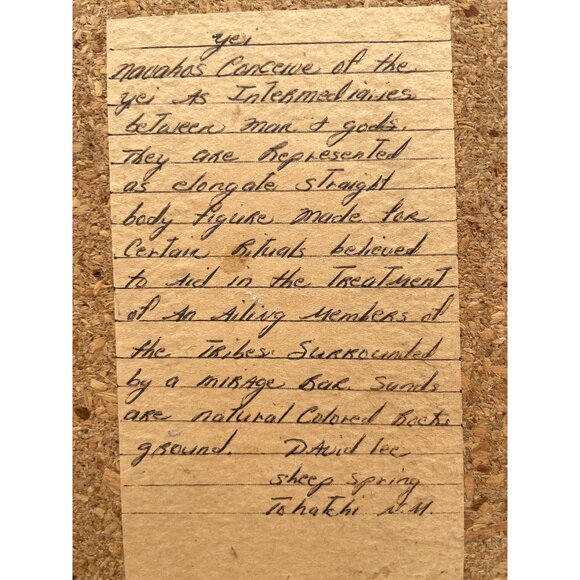 yei
Navahos Conceive of the
yei As Intermediaries
between man + gods.
They are Represented
as elongate straight
body figure made for
Certain Rituals believed
to Aid in the Treatment
of An Ailing Members of
the Tribes. Surrounded
by a mirage Bar. Sands
are natural Colored Rocks
ground. David Lee
sheep spring
Tohatchi N.M.